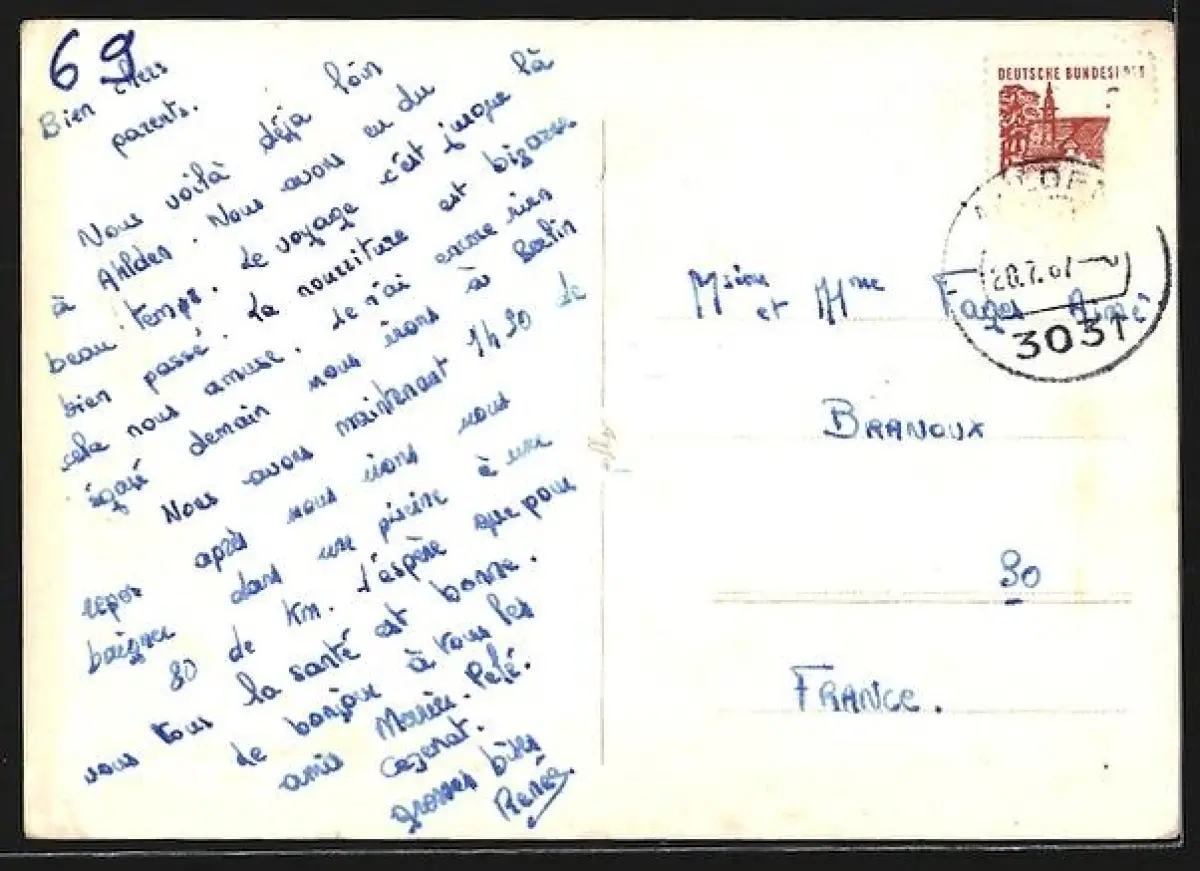 69
Bien chers
parents.
Nous voilà déja loin
à Ahlden. Nous avons eu du
beau temps. Le voyage c'est jusque là
bien passé. La nourriture est bizarre
cela nous amuse. Je n'ai encore rien
égaré demain nous irons à Berlin
Nous avons maintenant 1h 30 de
repos après nous irons nous
baigner dans une piscine à une
80 de km. J'espère que pour
vous tous la santé est bonne.
de bonjour à tous les
amis
Cazenat.
grosses bises
Renée
DEUTSCHE BUNDESPOST
3031
Msieu
et Mme Fages Aimé
BRANOUX
30
FRANCE.